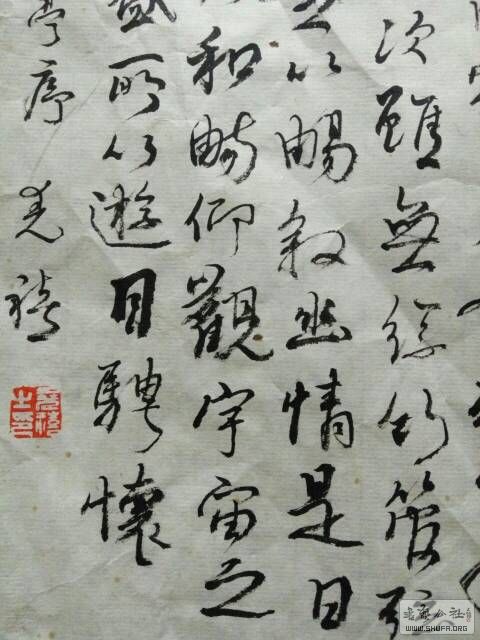 次雖無絲竹管弦
足以暢敘幽情是日
和暢仰觀宇宙之
盛所以遊目騁懷
亭序
WWW.SHUFA.ORG